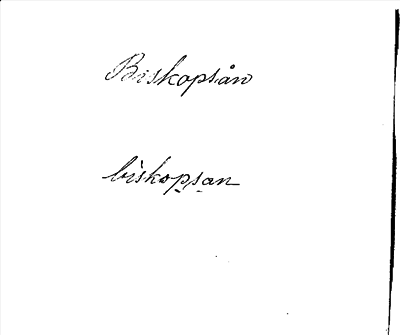 Biskopsån
biskopsan